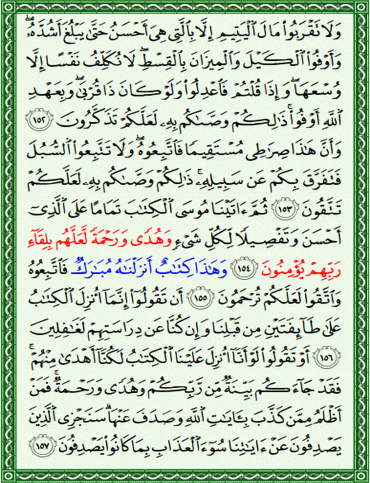 وَلَا تَقْرَبُوا۟ مَالَ ٱلْيَتِيمِ إِلَّا بِٱلَّتِى هِىَ أَحْسَنُ حَتَّىٰ يَبْلُغَ أَشُدَّهُۥ
وَأَوْفُوا۟ ٱلْكَيْلَ وَٱلْمِيزَانَ بِٱلْقِسْطِ ۖ لَا نُكَلِّفُ نَفْسًا إِلَّا
وُسْعَهَا ۖ وَإِذَا قُلْتُمْ فَٱعْدِلُوا۟ وَلَوْ كَانَ ذَا قُرْبَىٰ ۖ وَبِعَهْدِ
ٱللَّهِ أَوْفُوا۟ ۚ ذَٰلِكُمْ وَصَّىٰكُم بِهِۦ لَعَلَّكُمْ تَذَكَّرُونَ ١٥٢
وَأَنَّ هَٰذَا صِرَٰطِى مُسْتَقِيمًا فَٱتَّبِعُوهُ ۖ وَلَا تَتَّبِعُوا۟ ٱلسُّبُلَ
فَتَفَرَّقَ بِكُمْ عَن سَبِيلِهِۦ ۚ ذَٰلِكُمْ وَصَّىٰكُم بِهِۦ لَعَلَّكُمْ
تَتَّقُونَ ١٥٣ ثُمَّ ءَاتَيْنَا مُوسَى ٱلْكِتَٰبَ تَمَامًا عَلَى ٱلَّذِىٓ
أَحْسَنَ وَتَفْصِيلًا لِّكُلِّ شَىْءٍ وَهُدًى وَرَحْمَةً لَّعَلَّهُم بِلِقَآءِ
رَبِّهِمْ يُؤْمِنُونَ ١٥٤ وَهَٰذَا كِتَٰبٌ أَنزَلْنَٰهُ مُبَارَكٌ فَٱتَّبِعُوهُ
وَٱتَّقُوا۟ لَعَلَّكُمْ تُرْحَمُونَ ١٥٥ أَن تَقُولُوٓا۟ إِنَّمَآ أُنزِلَ ٱلْكِتَٰبُ
عَلَىٰ طَآئِفَتَيْنِ مِن قَبْلِنَا وَإِن كُنَّا عَن دِرَاسَتِهِمْ لَغَٰفِلِينَ
١٥٦ أَوْ تَقُولُوا۟ لَوْ أَنَّآ أُنزِلَ عَلَيْنَا ٱلْكِتَٰبُ لَكُنَّآ أَهْدَىٰ مِنْهُمْ ۚ
فَقَدْ جَآءَكُم بَيِّنَةٌ مِّن رَّبِّكُمْ وَهُدًى وَرَحْمَةٌ ۚ فَمَنْ
أَظْلَمُ مِمَّن كَذَّبَ بِـَٔايَٰتِ ٱللَّهِ وَصَدَفَ عَنْهَا ۗ سَنَجْزِى ٱلَّذِينَ
يَصْدِفُونَ عَنْ ءَايَٰتِنَا سُوٓءَ ٱلْعَذَابِ بِمَا كَانُوا۟ يَصْدِفُونَ ١٥٧